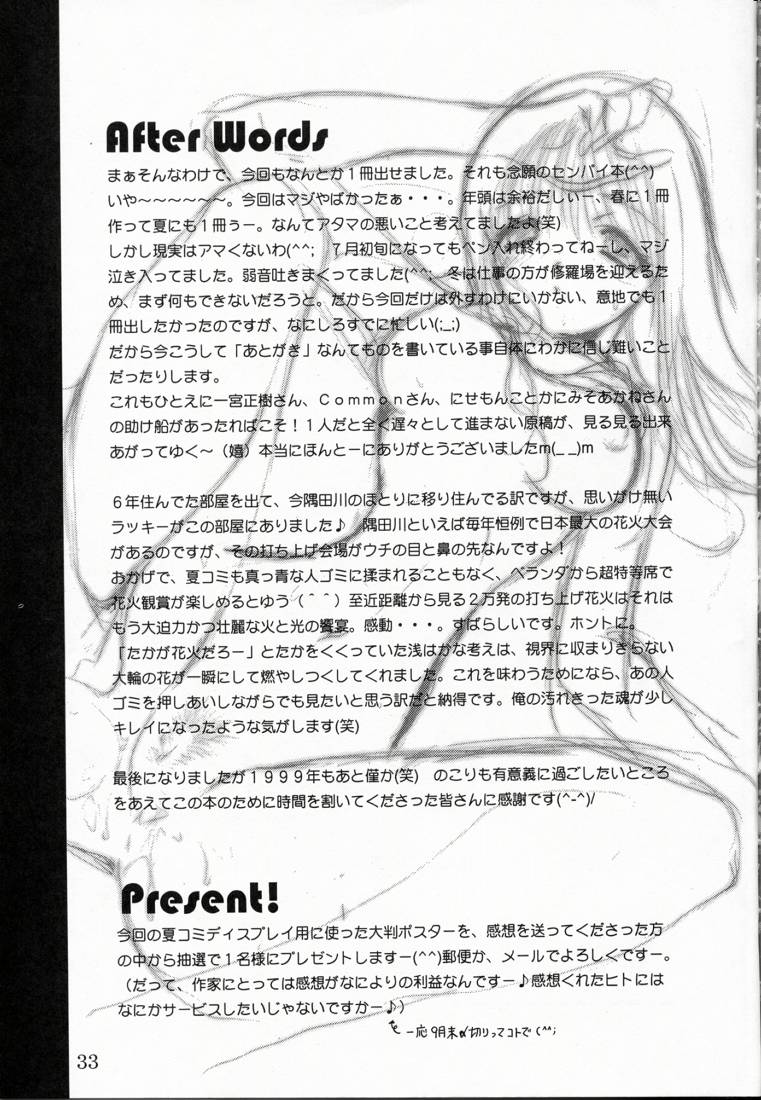 After Words
まぁそんなわけで、今回もなんとか1冊出せました。それも念願のセンパイ本(^^)
いや～～～～～～。今回はマジやばかったぁ・・・。年頭は余裕だしぃー、春に1冊
作って夏にも1冊ぅー。なんてアタマの悪いこと考えてましたよ(笑)
しかし現実はアマくないわ(^^;　7月初旬になってもペン入れ終わってねーし、マジ
泣き入ってました。弱音吐きまくってました(^^;　冬は仕事の方が修羅場を迎えるた
め、まず何もできないだろうと。だから今回だけは外すわけにいかない、意地でも1
冊出したかったのですが、なにしろすでに忙しい(;_;)
だから今こうして「あとがき」なんてものを書いている事自体にわかに信じ難いこと
だったりします。
これもひとえに一宮正樹さん、Ｃｏｍｍｏｎさん、にせもんことかにみそあかねさん
の助け船があったればこそ！1人だと全く遅々として進まない原稿が、見る見る出来
あがってゆく～（嬉）本当にほんとーにありがとうございましたm(_ _)m
6年住んでた部屋を出て、今隅田川のほとりに移り住んでる訳ですが、思いがけ無い
ラッキーがこの部屋にありました♪　隅田川といえば毎年恒例で日本最大の花火大会
があるのですが、その打ち上げ会場がウチの目と鼻の先なんですよ！
おかげで、夏コミも真っ青な人ゴミに揉まれることもなく、ベランダから超特等席で
花火観賞が楽しめるとゆう（＾＾）至近距離から見る２万発の打ち上げ花火はそれは
もう大迫力かつ壮麗な火と光の饗宴。感動・・・。すばらしいです。ホントに。
「たかが花火だろー」とたかをくくっていた浅はかな考えは、視界に収まりきらない
大輪の花が一瞬にして燃やしつくしてくれました。これを味わうためになら、あの人
ゴミを押しあいしながらでも見たいと思う訳だと納得です。俺の汚れきった魂が少し
キレイになったような気がします(笑)
最後になりましたが１９９９年もあと僅か(笑)　のこりも有意義に過ごしたいところ
をあえてこの本のために時間を割いてくださった皆さんに感謝です(^-^)/
Present!
今回の夏コミディスプレイ用に使った大判ポスターを、感想を送ってくださった方
の中から抽選で１名様にプレゼントしますー(^^)郵便か、メールでよろしくですー。
（だって、作家にとっては感想がなによりの利益なんですー♪感想くれたヒトには
なにかサービスしたいじゃないですかー♪）
一応9月末〆切りってコトで(^^;
33